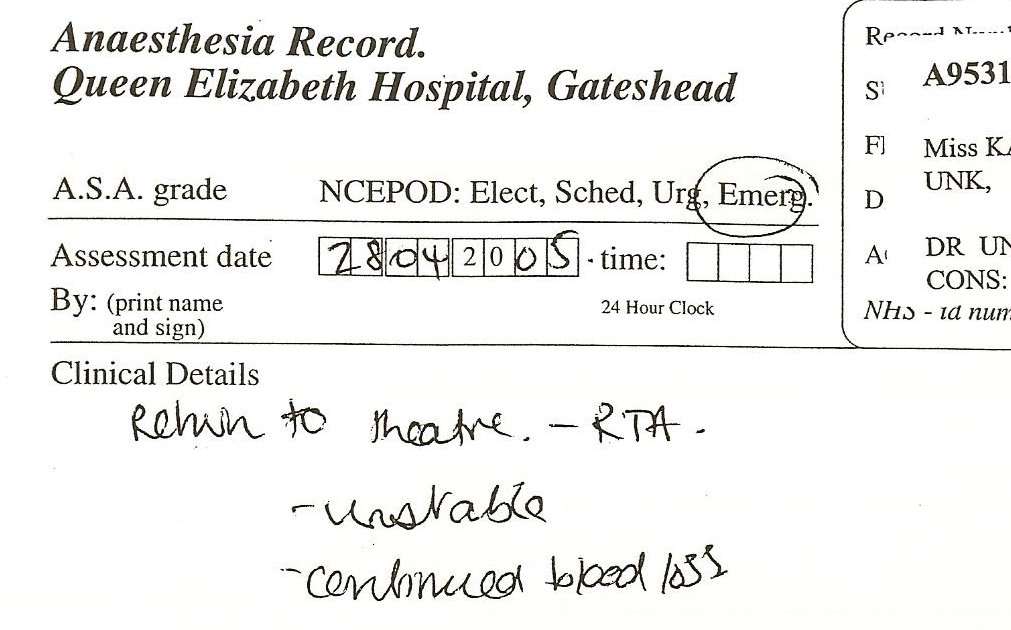 Anaesthesia Record.
Queen Elizabeth Hospital, Gateshead
A.S.A. grade NCEPOD: Elect, Sched, Urg, Emerg.
Assessment date 28042005 · time:
By: (print name
and sign)
24 Hour Clock
Clinical Details
Return to theatre. - RTA.
- unstable
- continued blood loss
A9531
Miss KA
UNK,
DR UN
CONS:
NHS - id num